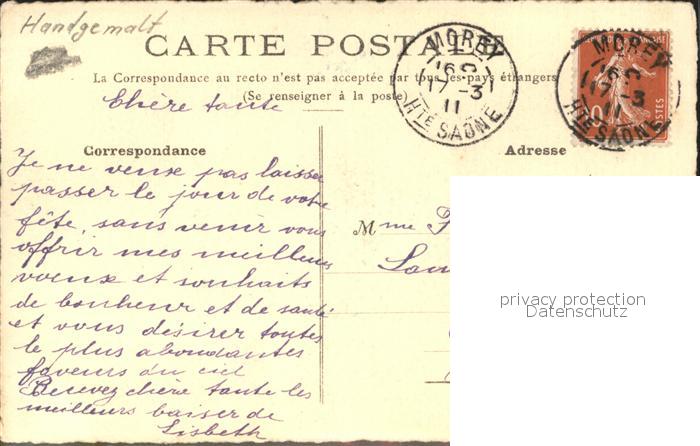 Handgemalt
CARTE POSTALE
La Correspondance au recto n'est pas acceptée par tous les pays étrangers
(Se renseigner à la poste)
MOREY
16
17 -3
11
HTE SAÔNE
MOREY
16
17 -3
11
HTE SAÔNE
10
POSTES
Chère tante
Correspondance
Je ne veux pas laisser
passer le jour de votre
fête, sans venir vous
offrir mes meilleurs
voeux et souhaits
de bonheur et de santé
et vous désirer toutes
le plus abondantes
faveurs du ciel
Recevez chère tante les
meilleurs baiser de
Lisbeth
Adresse
Mme
privacy protection
Datenschutz